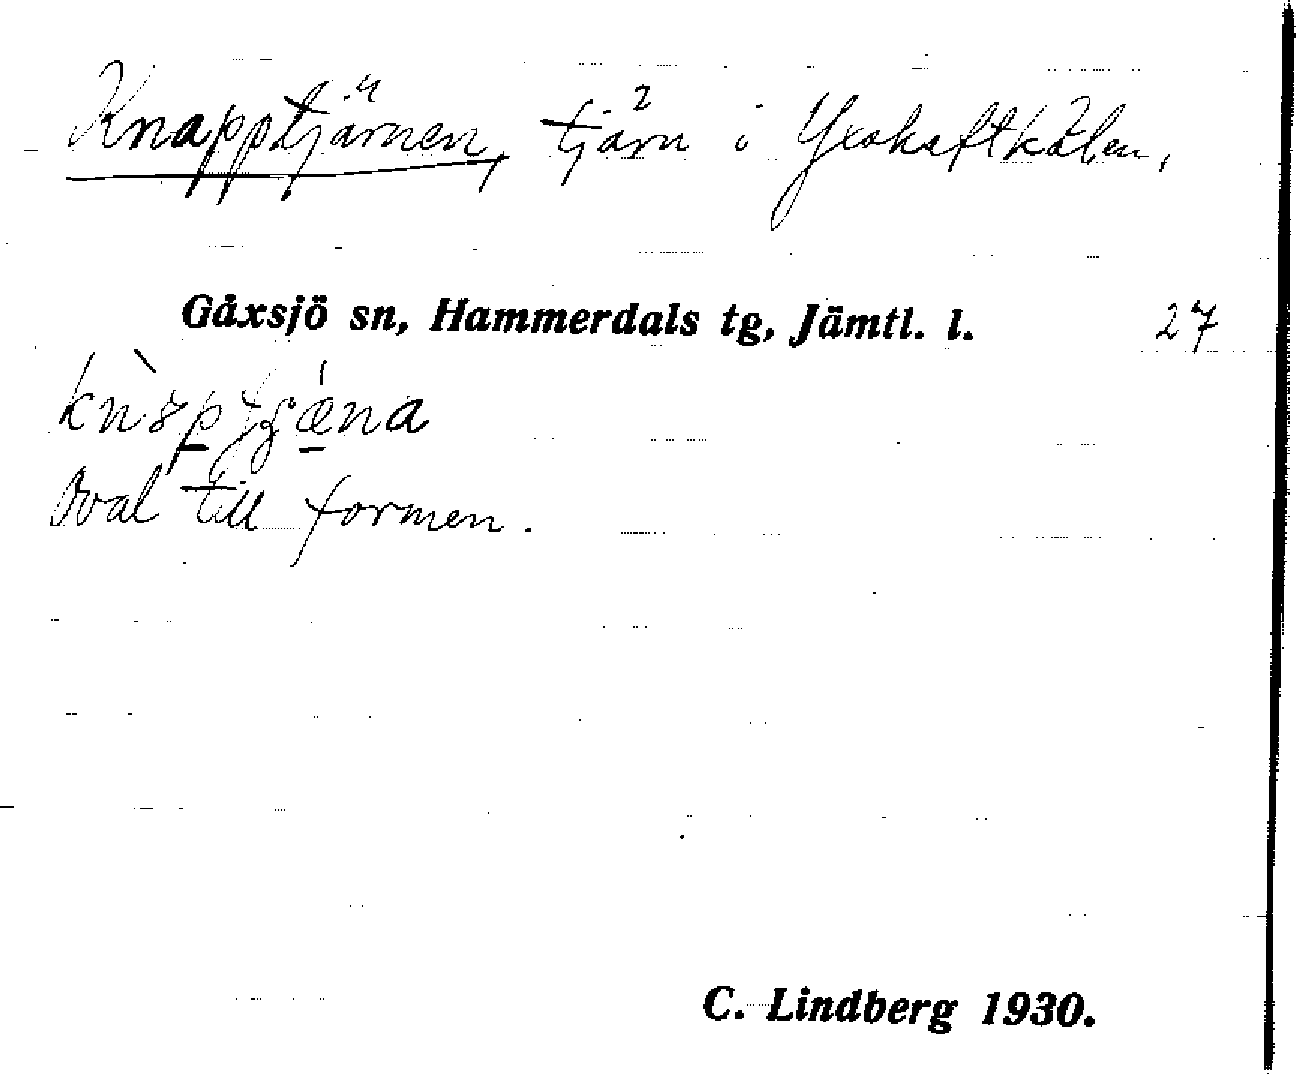 Knapptjärnen, tjärn i Yxskaftkälen,
Gåxsjö sn, Hammerdals tg, Jämtl. l. 27
Oval till formen.
C. Lindberg 1930.